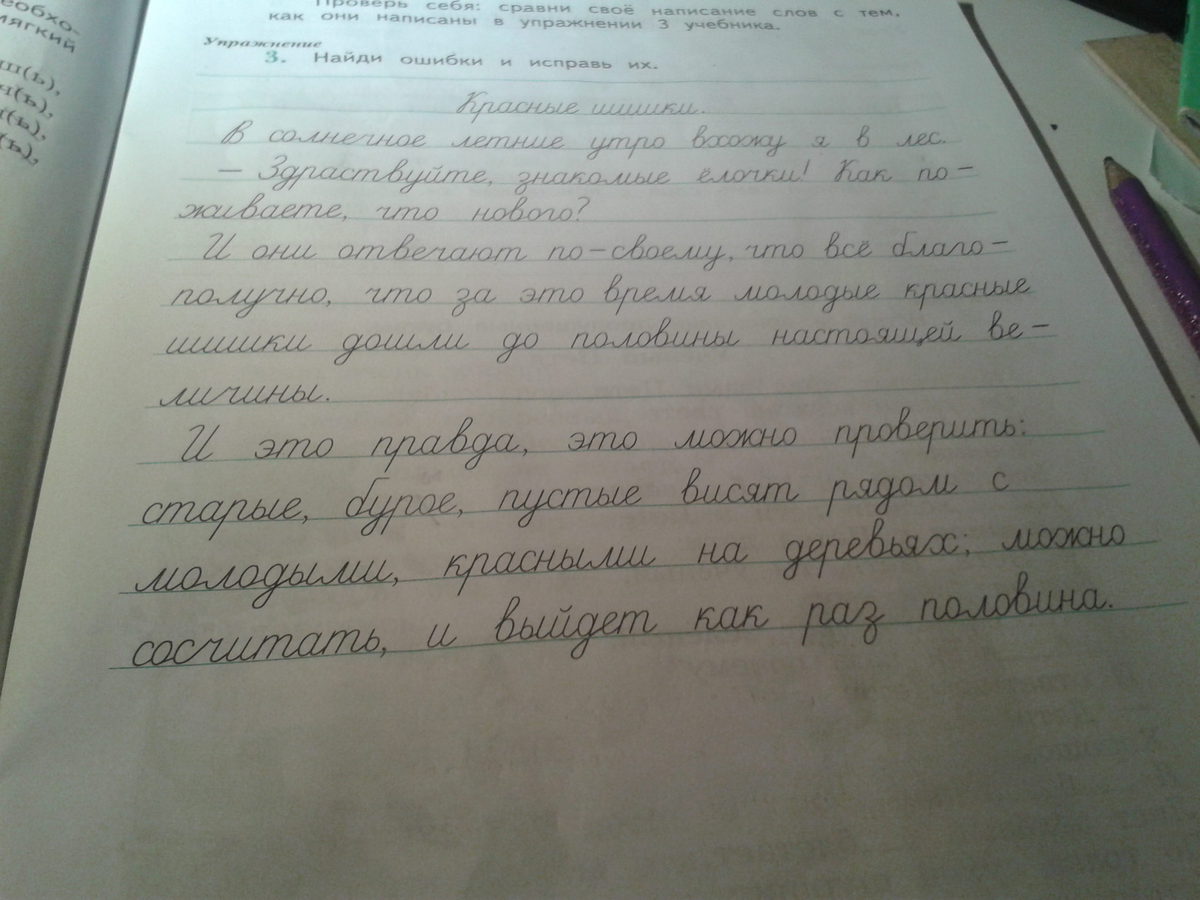 необхо-
мягкий
ш(ь),
ч(ь),
(ь),
(ь),
Проверь себя: сравни своё написание слов с тем,
как они написаны в упражнении 3 учебника.
Упражнение
3. Найди ошибки и исправь их.
Красные шишки.
В солнечное летние утро вхожу я в лес.
– Здраствуйте, знакомые ёлочки! Как по-
живаете, что нового?
И они отвечают по-своему, что всё благо-
получно, что за это время молодые красные
шишки дошли до половины настоящей ве-
личины.
И это правда, это можно проверить:
старые, бурое, пустые висят рядом с
молодыми, красными на деревьях; можно
сосчитать, и выйдет как раз половина.